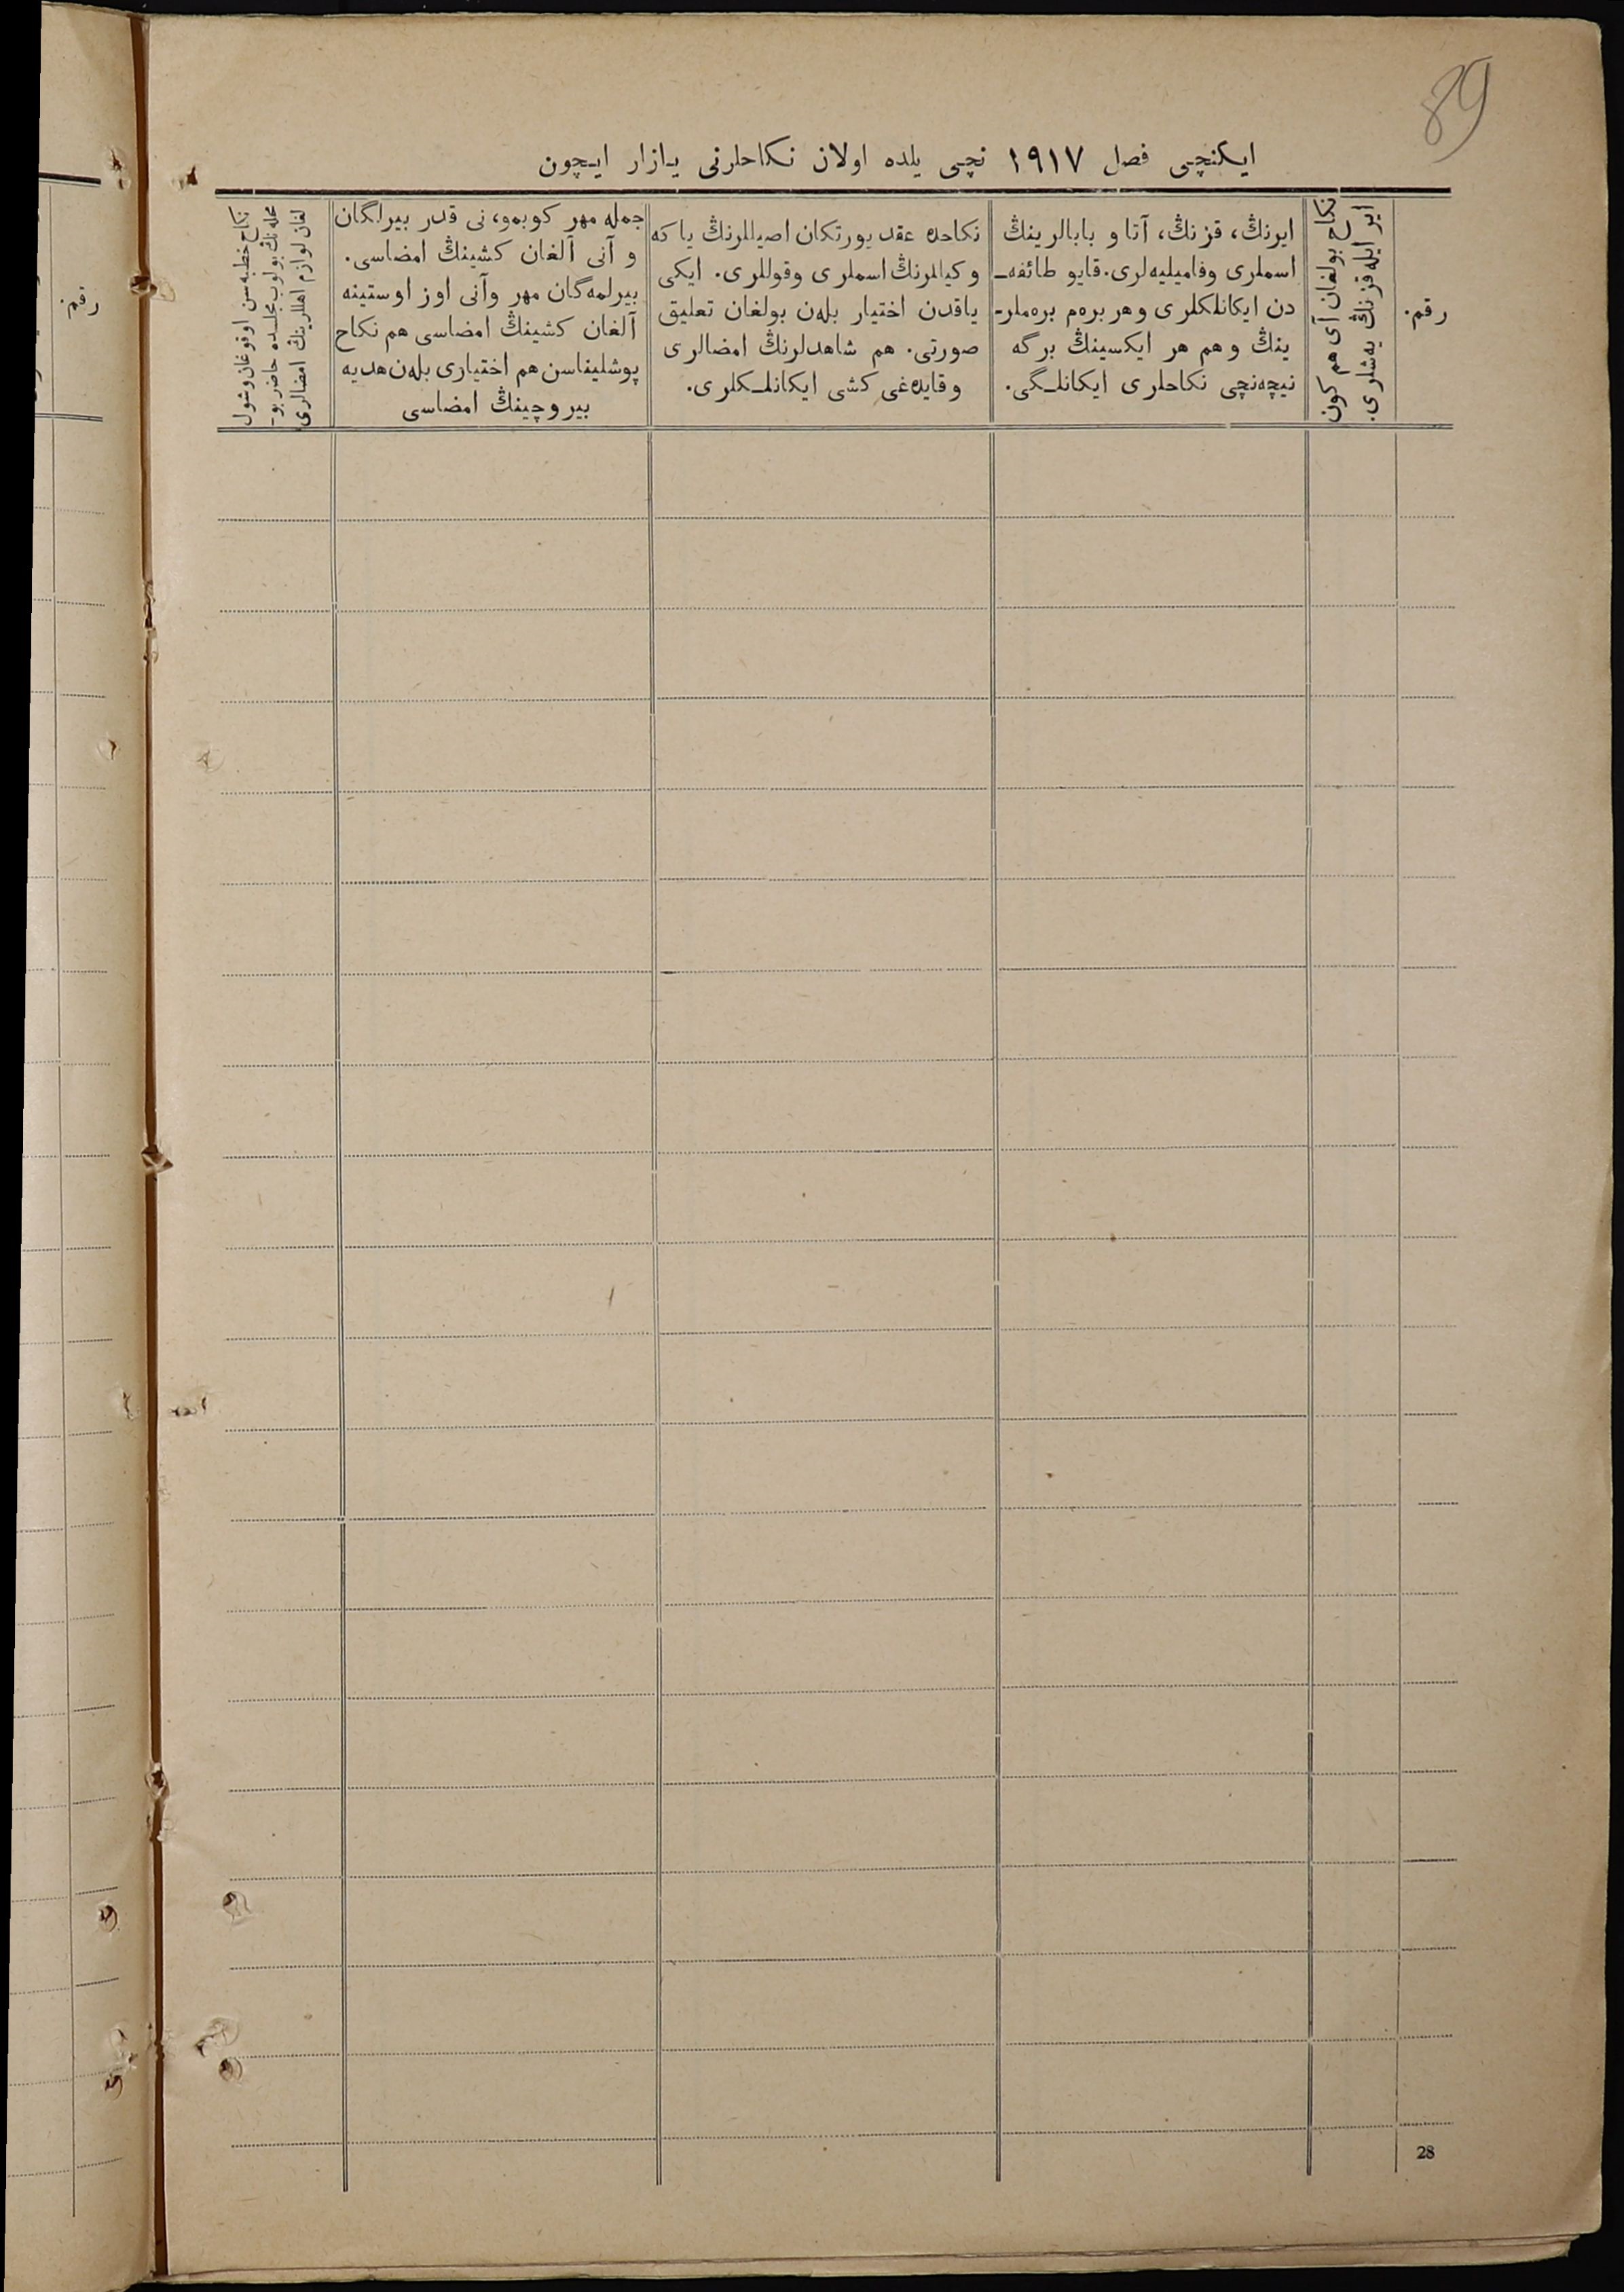 89
ایکنچی فصل ۱۹۱۷ نچی یلده اولان نکاحلرنی یازار ایچون
رقم.
نکاح بولغان آی هم کون
ایر ایله قزنڭ یەشلری.
ایرنڭ، قزنڭ، آتا و بابالرینڭ
اسملری وفامیلیەلری. قایو طائفەـ
دن ایکانلکلری وهر برەم برەملرـ
ینڭ وهم هر ایکسینڭ برگه
نیچەنچی نکاحلری ایکانلـگی.
نکاحده عقد یورتکان اصیللرنڭ یا که
وکیللرنڭ اسملری وقوللری. ایکی
یاقدن اختیار بلەن بولغان تعلیق
صورتی. هم شاهدلرنڭ امضالری
وقایدەغی کشی ایکانلـکلری.
جمله مهر کوبمو، نی قدر بیرلگان
و آنی آلغان کشینڭ امضاسی.
بیرلمەگان مهر وآنی اوز اوستینه
آلغان کشینڭ امضاسی هم نکاح
پوشلیناسن هم اختیاری بلەن هدیه
بیروچینڭ امضاسی
نکاح خطبه سن اوقوغان وشول
محله نڭ بولوب مجلسده حاضر بوـ
لغان لوازم اهللرینڭ امضالری
رقم.
28